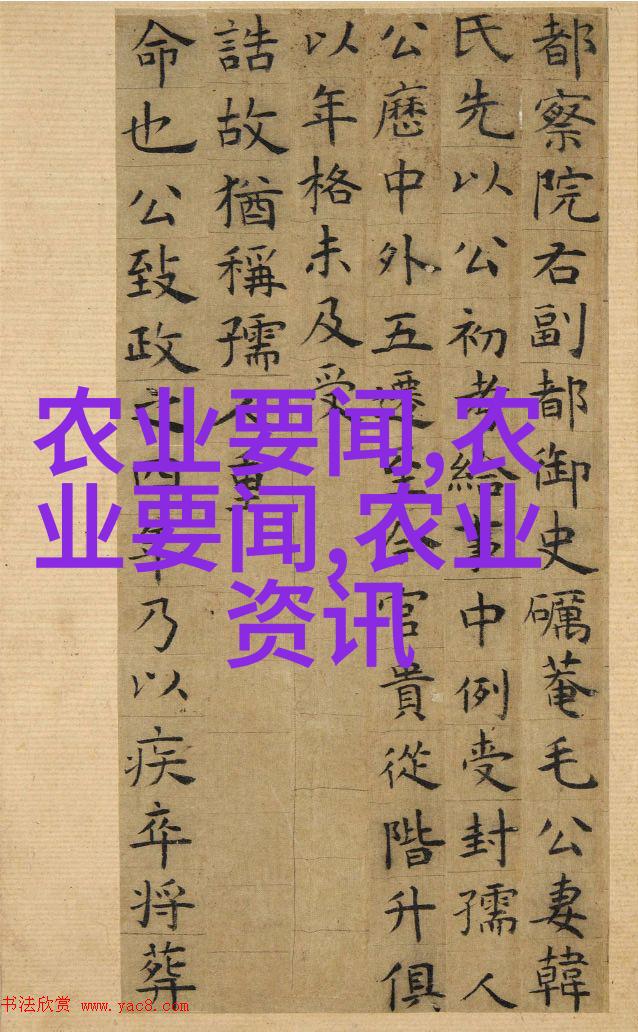 都察院右副都御史礪菴毛公妻韓
氏先以公初考給事中例受封孺人
公歷中外五遷至今官貴從階升俱
以年格未及受
誥故猶稱孺人重
命也公致政之四年乃以疾卒将葬
农业要闻,农
业要闻,农业
资讯
书法欣赏 www.yac8.com